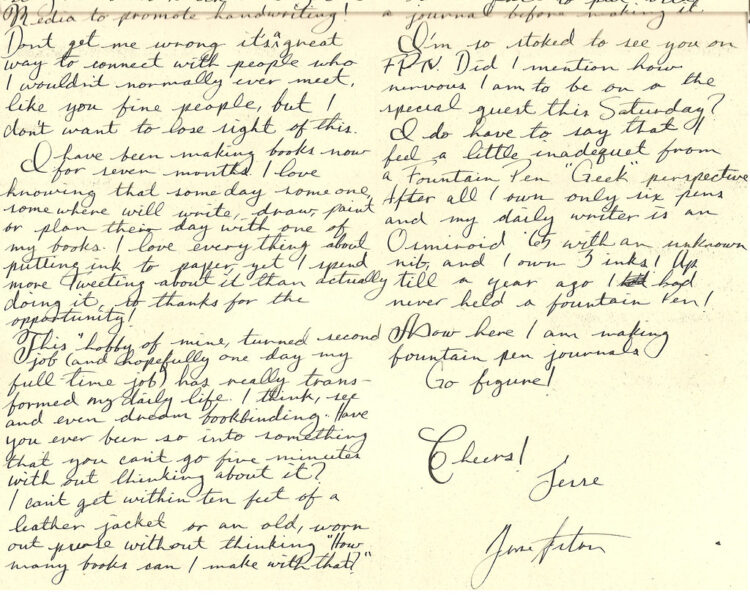 Media to promote handwriting!
Don't get me wrong it's a great
way to connect with people who
I wouldn't normally ever meet,
like you fine people, but I
don't want to lose sight of this.
I have been making books now
for seven months. I love
knowing that someday someone,
somewhere will write, draw, paint
or plan their day with one of
my books. I love everything about
putting ink to paper, yet I spend
more tweeting about it than actually
doing it, so thanks for the
opportunity!
This "hobby of mine, turned second
job (and hopefully one day my
full time job) has really trans-
formed my daily life. I think, see
and even dream bookbinding. Have
you ever been so into something
that you can't go five minutes
with out thinking about it?
I can't get within ten feet of a
leather jacket or an old, worn
out purse without thinking "How
many books can I make with that?"
a journal before making it.
I'm so stoked to see you on
Did I mention how
nervous I am to be on a the
special guest this Saturday?
I do have to say that I
feel a little inadequet from
a Fountain Pen "Geek" perspective
After all I own only six pens
and my daily writer is an
Osminoid '65 with an unknown
nib, and I own 3 inks! Up
till a year ago I had
never held a fountain Pen!
Now here I am making
fountain pen journals
Go figure!
Cheers!
Jesse